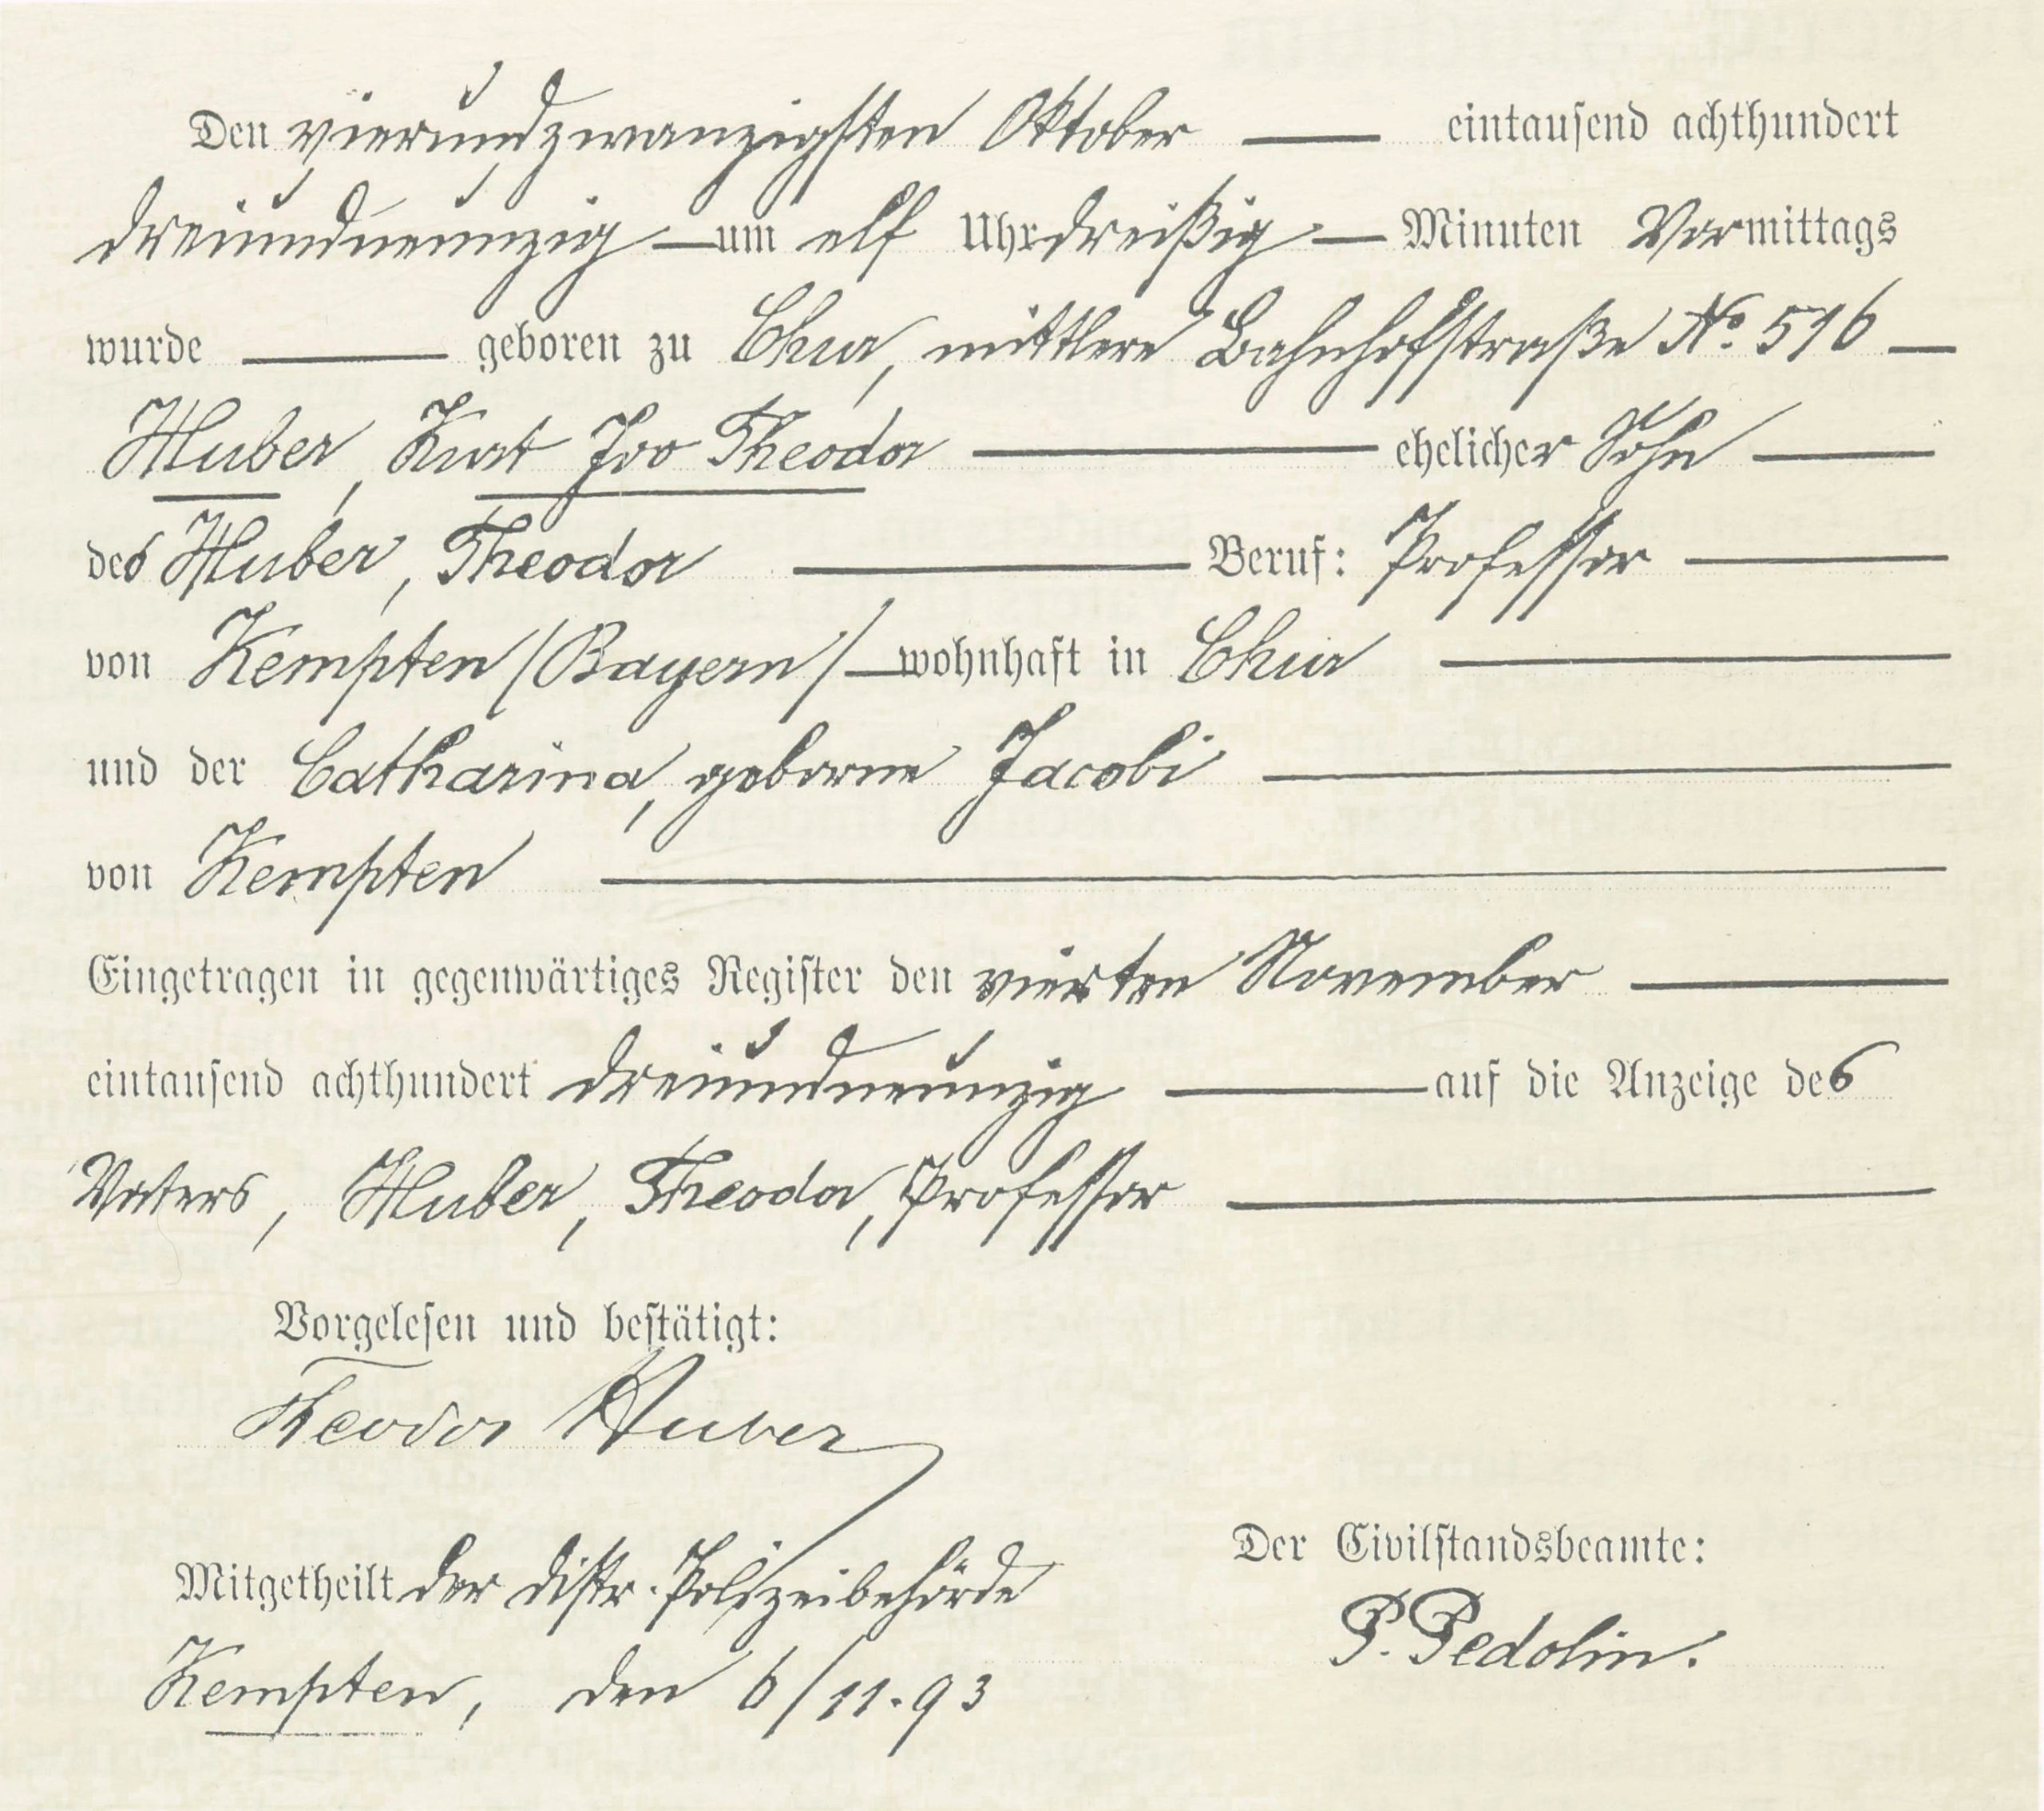 Den vierundzwanzigsten Oktober — eintausend achthundert
dreiundneunzig — um elf Uhr dreißig — Minuten Vormittags
wurde — geboren zu Chur, mittlere Bahnhofstraße No. 516 —
Huber, Kurt Ivo Theodor — ehelicher Sohn —
des Huber, Theodor — Beruf: Professor —
von Kempten (Bayern) — wohnhaft in Chur —
und der Catharina, geborne Jacobi —
von Kempten —
Eingetragen in gegenwärtiges Register den vierten November —
eintausend achthundert dreiundneunzig — auf die Anzeige des
Vaters, Huber, Theodor, Professor —
Vorgelesen und bestätigt:
Theodor Huber
Der Civilstandsbeamte:
Mitgetheilt der distr. Polizeibehörde
P. Pedolin.
Kempten, den 6/11. 93